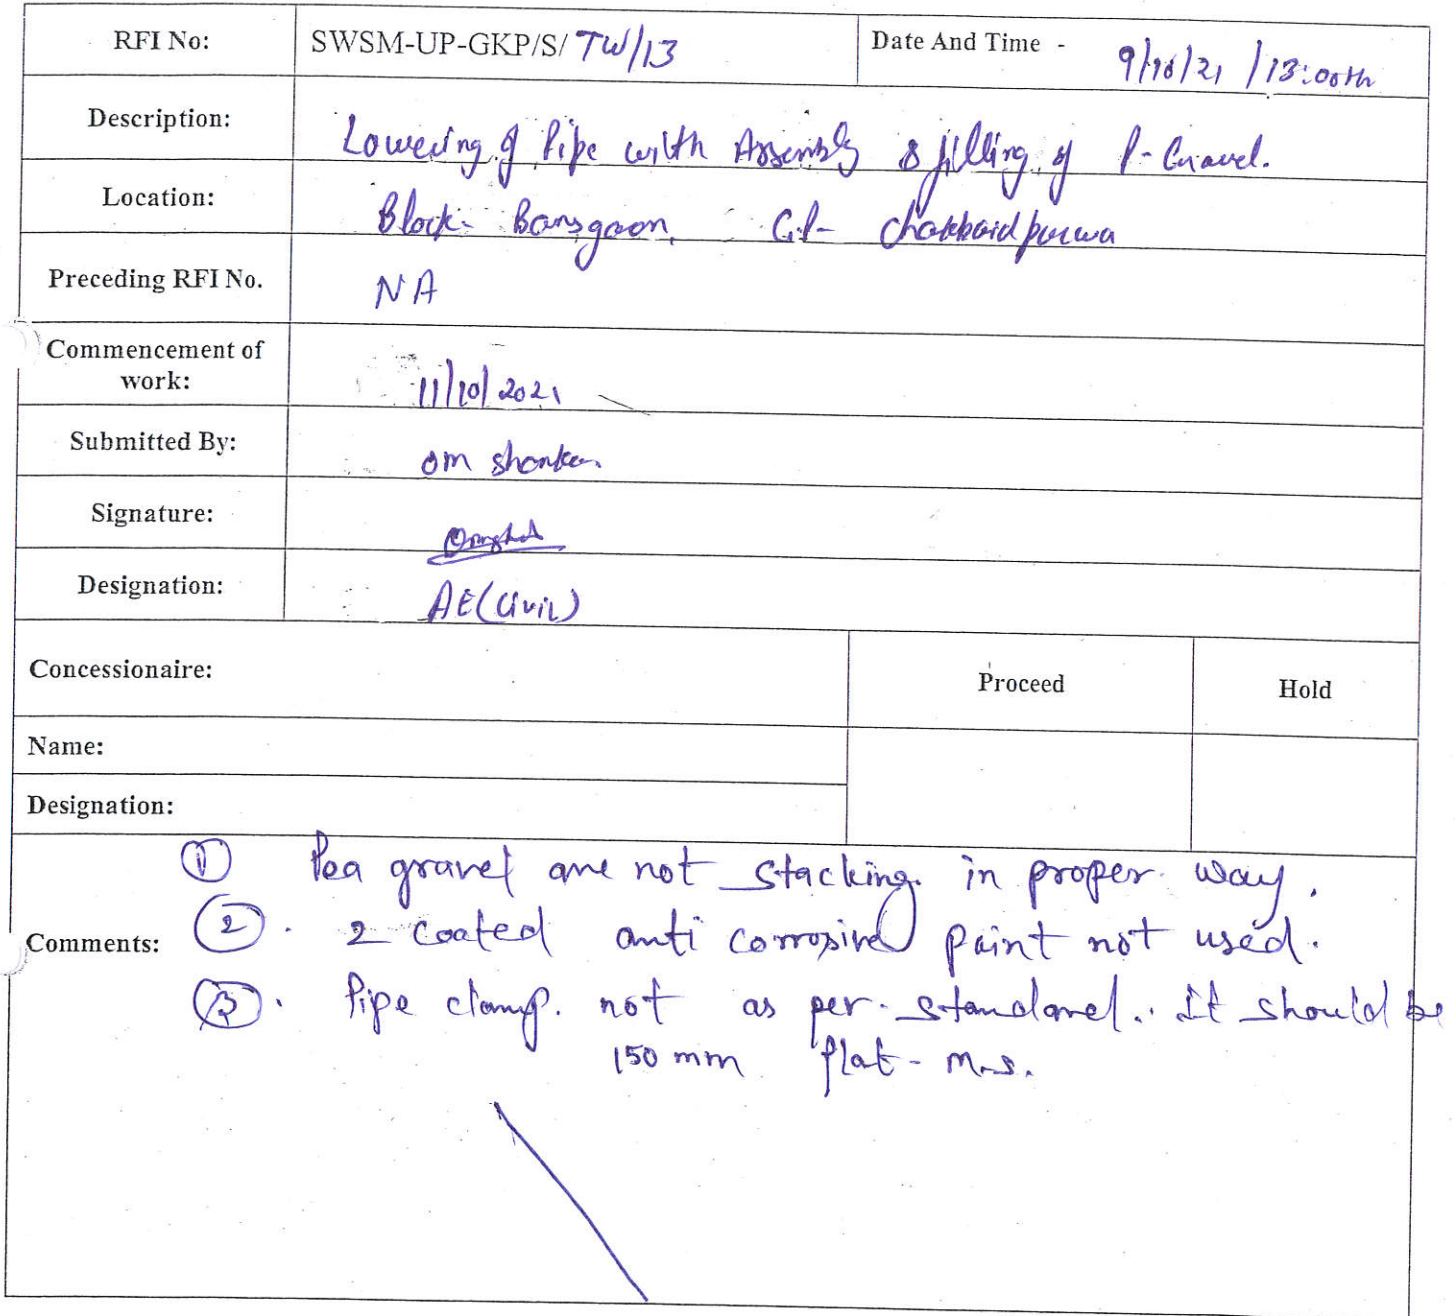 RFI No: SWSM-UP-GKP/S/ TW/13 Date And Time - 9/10/21 /13:00th
Description: Lowering of Pipe with Assembly & filling of P-Gravel.
Location: Block- Bansgaon, G.P- Chakbaidpurwa
Preceding RFI No. NA
Commencement of
work: 11/10/2021
Submitted By: om shanker
Signature:
Designation: AE(Civil)
Concessionaire: Proceed Hold
Name:
Designation:
① Pea gravel are not stacking in proper way.
②. 2 coated anti corrosive paint not used.
Comments:
③. Pipe clamp. not as per standard.. It should be
150 mm flat - M.S.